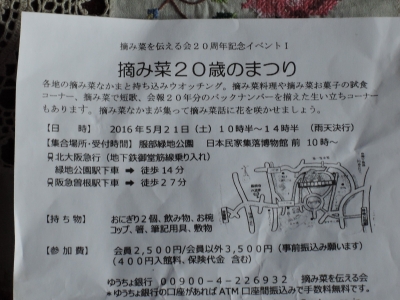 摘み菜を伝える会20周年記念イベントI
摘み菜20歳のまつり
各地の摘み菜なかまと持ち込みウオッチング。摘み菜料理や摘み菜お菓子の試食
コーナー、摘み菜で短歌、会報20年分のバックナンバーを揃えた生い立ちコーナー
もあります。 摘み菜なかまが集って摘み菜話に花を咲かせましょう。
【日　　時】　2016年5月21日（土）10時半～14時半　（雨天決行）
【集合場所・受付時間】 服部緑地公園　日本民家集落博物館 前 10時～
北大阪急行（地下鉄御堂筋線乗り入れ）
緑地公園駅下車 ➡ 徒歩14分
阪急曽根駅下車 ➡ 徒歩27分
【持 ち 物】　おにぎり2個、飲み物、お椀
コップ、箸、筆記用具、敷物
【参 加 費】　会員2,500円/会員以外3,500円（事前振込み願います）
（400円入館料、保険代金 含む）
ゆうちょ銀行　00900-4-226932　摘み菜を伝える会
*ゆうちょ銀行の口座があればATM口座間振込みで手数料無料です。